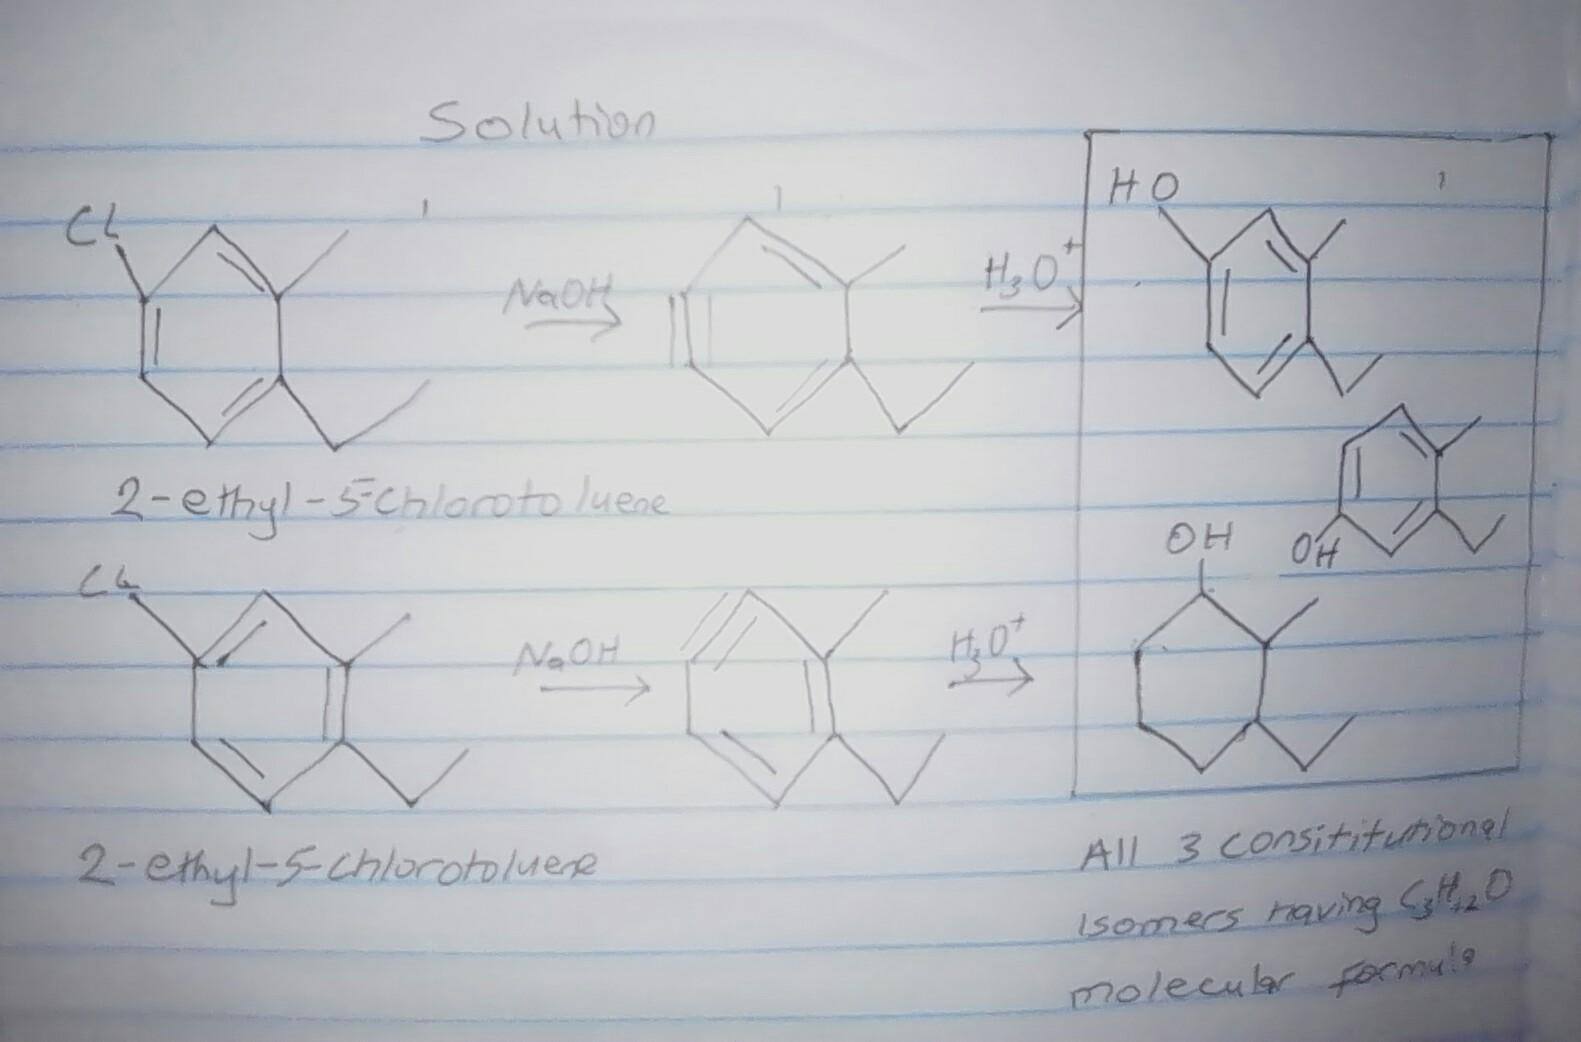 Solution
Cl
NaOH
H₃O⁺
HO
2-ethyl-5-chlorotoluene
OH
OH
Cl
NaOH
H₃O⁺
2-ethyl-5-chlorotoluene
All 3 consititutional
isomers having C₃H₁₂O
molecular formula